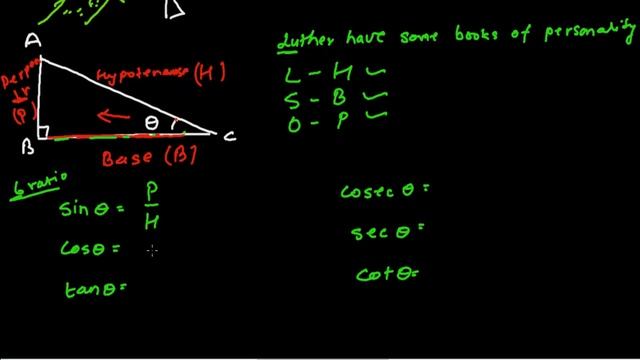 A
Hypotenuse (H)
(P)
θ
B
C
Base (B)
Luther have some books of personality
L - H
S - B
O - P
6 ratio
sin θ = P/H
cosθ =
tanθ =
cosec θ =
sec θ =
cotθ =